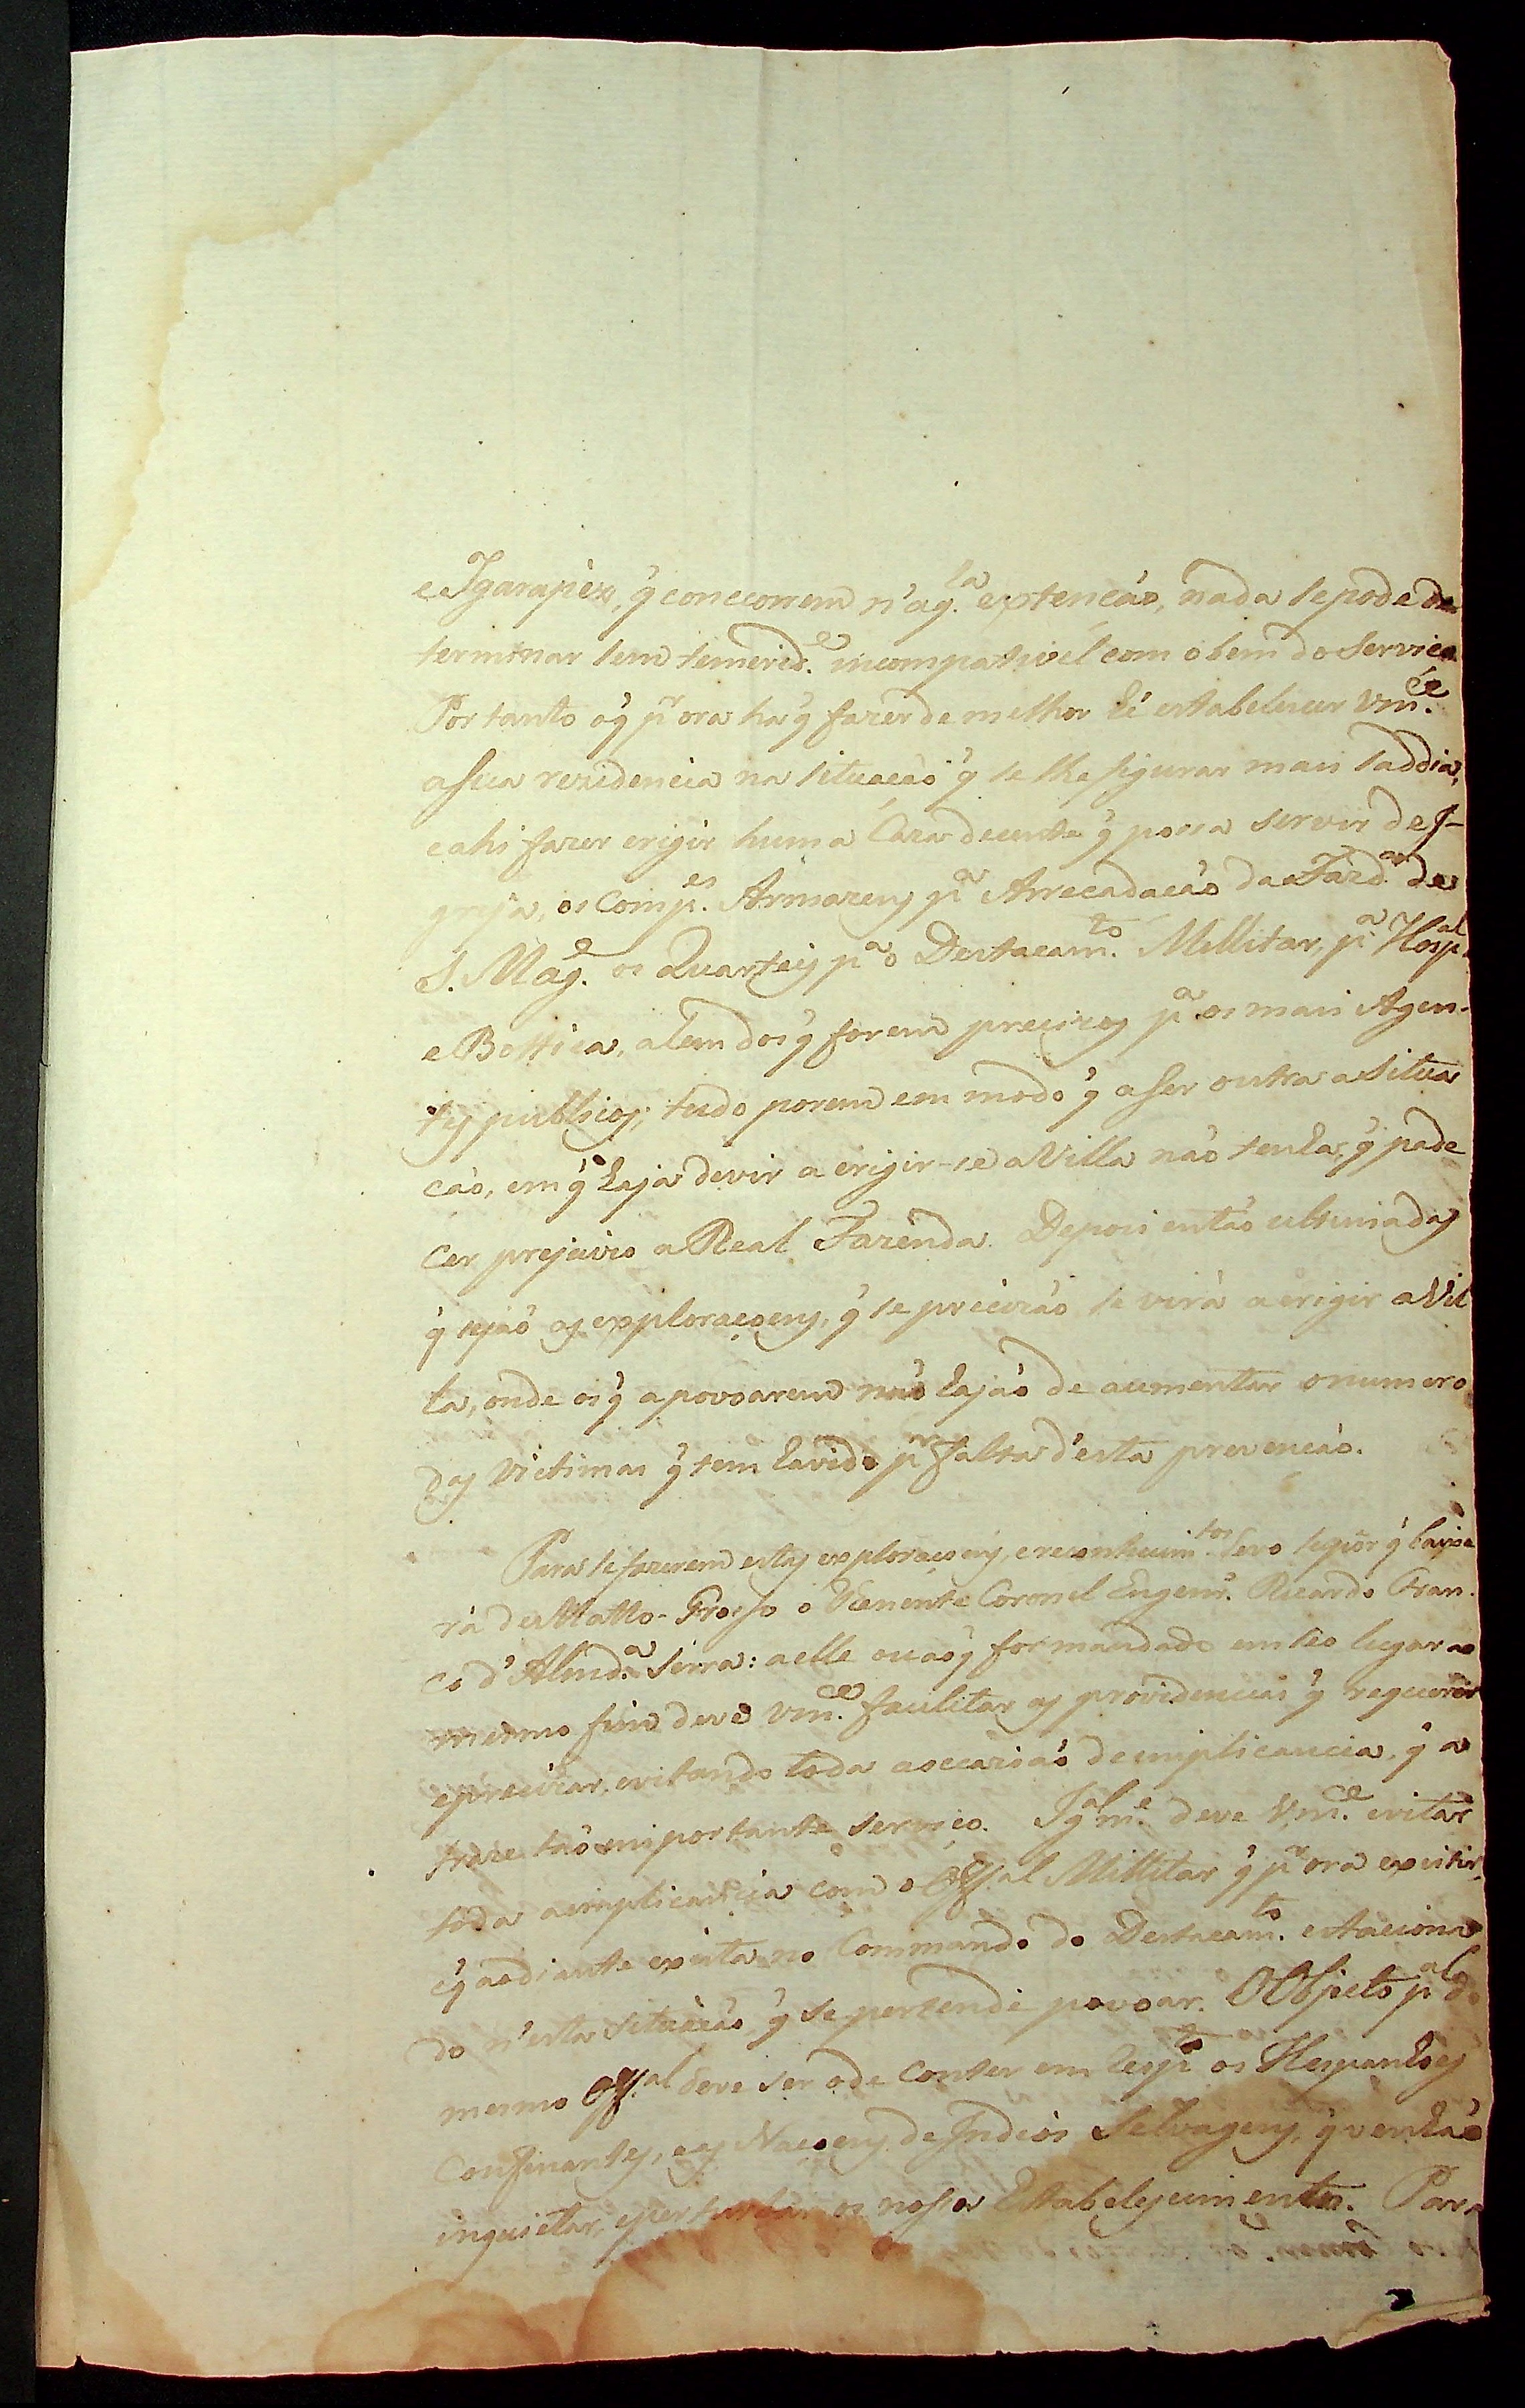 e Igarapèz, q̃ conccorrem n'aq.la extenção, nada se pode de
terminar sem temerid.e incompativel com o bem do Serviço.
Por tanto o q̃ p.r ora ha q̃ fazer de melhor hé estabelecer Vm.ce
a sua rezidencia na situação q̃ se lhe figurar mais saddia,
e ahi fazer erigir huma Caza decente q̃ possa servir de I-
greja, os Comp.es Armazens p.a Arrecadação da Fazd.a de
S. Mag.e os Quarteis p.a o Destacam.to Millitar, p.a Hosp.al
e Bottica, alem dos q̃ forem precizos p.a os mais Agen-
tes publicos; tudo porem em modo q̃ a ser outra a Situa
ção, em q̃ haja de vir a erigir-se a Villa não tenha q̃ pade
cer prejuizo a Real Fazenda. Depois então ultimadas
q̃ sejão as exploraçoens, q̃ se precizão se virá a erigir a Vil
la, onde os q̃ a povoarem não hajão de aumentar o numero
das Victimas q̃ tem havido p.r falta d'esta prevenção.
Para se fazerem estas exploraçoens, e reconhecim.tos devo seguir q̃ baixa
rá de Matto-Grosso o Tenente Coronel Engenr.o Ricardo Fran.
co d'Almd.a Serra: a elle ou ao q̃ for mandado em seo lugar ao
mesmo fim deve Vm.ce facilitar as providencias q̃ requerer
e precizar, evitando toda a occazião de implicancia, q̃ a
traze tão importante serviço. Igualm.e deve Vm.ce evitar
toda a implicancia com o Off.al Millitar q̃ p.r ora existir,
e q̃ ao diante exista no Commando do Destacam.to estaciona
do n'esta situação q̃ se pertende povoar. O Objeto p.al do
mesmo Off.al deve ser o de Conter em resp.to os Hespanhoes
Confinantes, e as Naçoens de Indios Selvagens, q̃ venhão
inquietar, e perturbar os nossos Estabelescimentos. Para